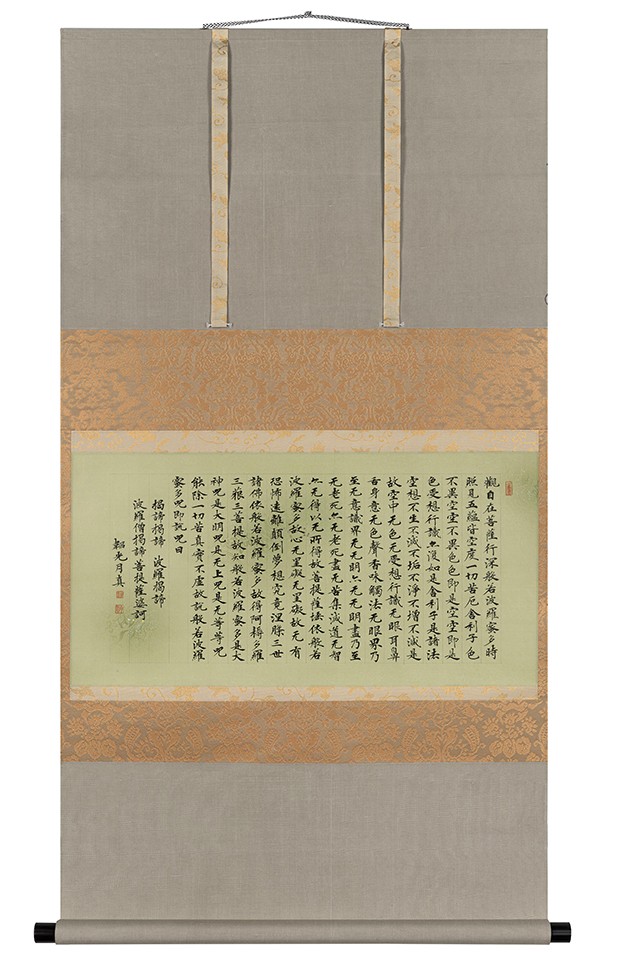 觀自在菩薩行深般若波羅蜜多時
照見五蘊皆空度一切苦厄舍利子色
不異空空不異色色即是空空即是
色受想行識亦復如是舍利子是諸法
空想不生不滅不垢不淨不增不減是
故空中无色无受想行識无眼耳鼻
舌身意无色聲香味觸法无眼界乃
至无意識界无无明亦无无明盡乃至
无老死亦无老死盡无苦集滅道无智
亦无得以无所得故菩提薩埵依般若
波羅蜜多故心无罣礙无罣礙故无有
恐怖遠離顛倒夢想究竟涅槃三世
諸佛依般若波羅蜜多故得阿耨多羅
三藐三菩提故知般若波羅蜜多是大
神咒是大明咒是无上咒是无等等咒
能除一切苦真實不虛故說般若波羅
蜜多咒即說咒曰
揭諦揭諦 波羅揭諦
波羅僧揭諦菩提薩婆訶
韜光月真